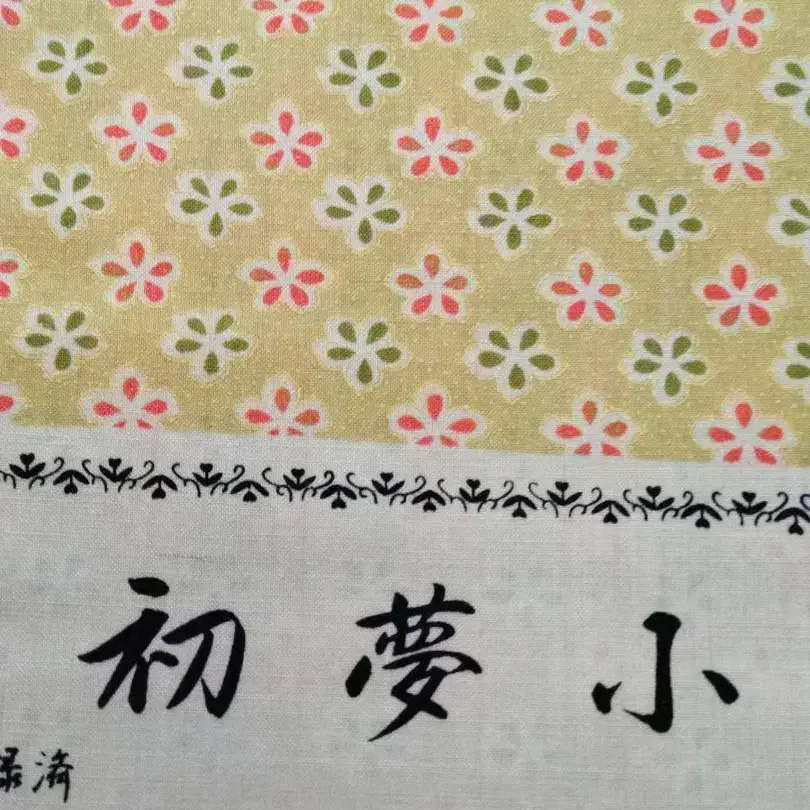 初夢小
録済